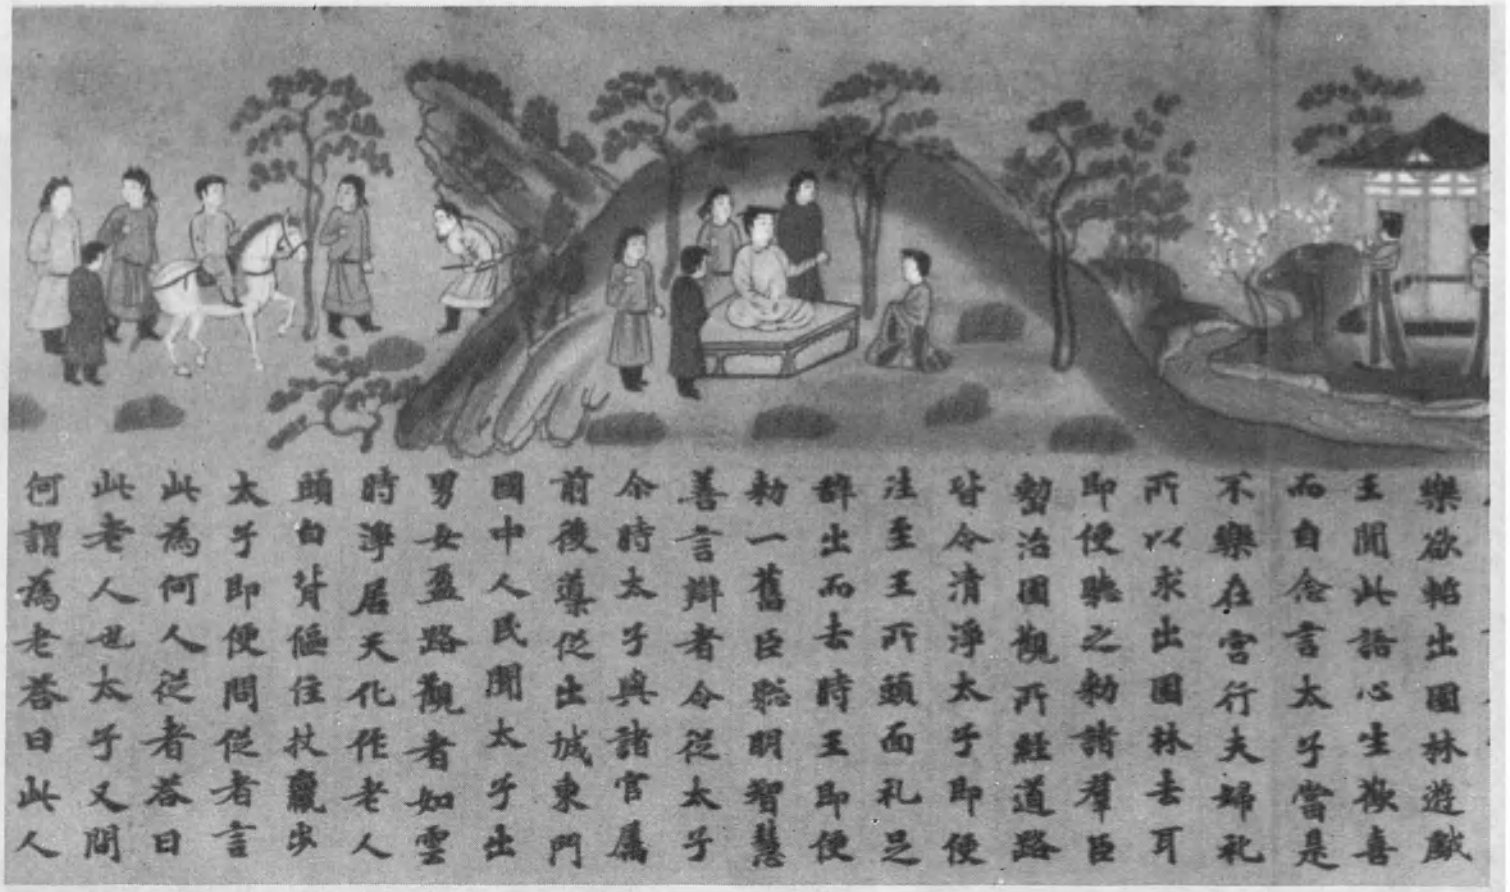 樂欲蹔出園林遊戯
王聞此語心生歡喜
而自念言太子當是
不樂在宮行夫婦礼
所以求出園林去耳
即便聽之勅諸羣臣
整治園觀所經道路
皆令清淨太子即便
往至王所頭面礼足
辝出而去時王即便
勅一舊臣聡明智慧
善言辯者令從太子
尒時太子與諸官属
前後導從出城東門
國中人民聞太子出
男女盈路觀者如雲
時淨居天化作老人
頭白背傴住杖羸步
太子即便問從者言
此為何人從者荅曰
此老人也太子又問
何謂為老荅曰此人